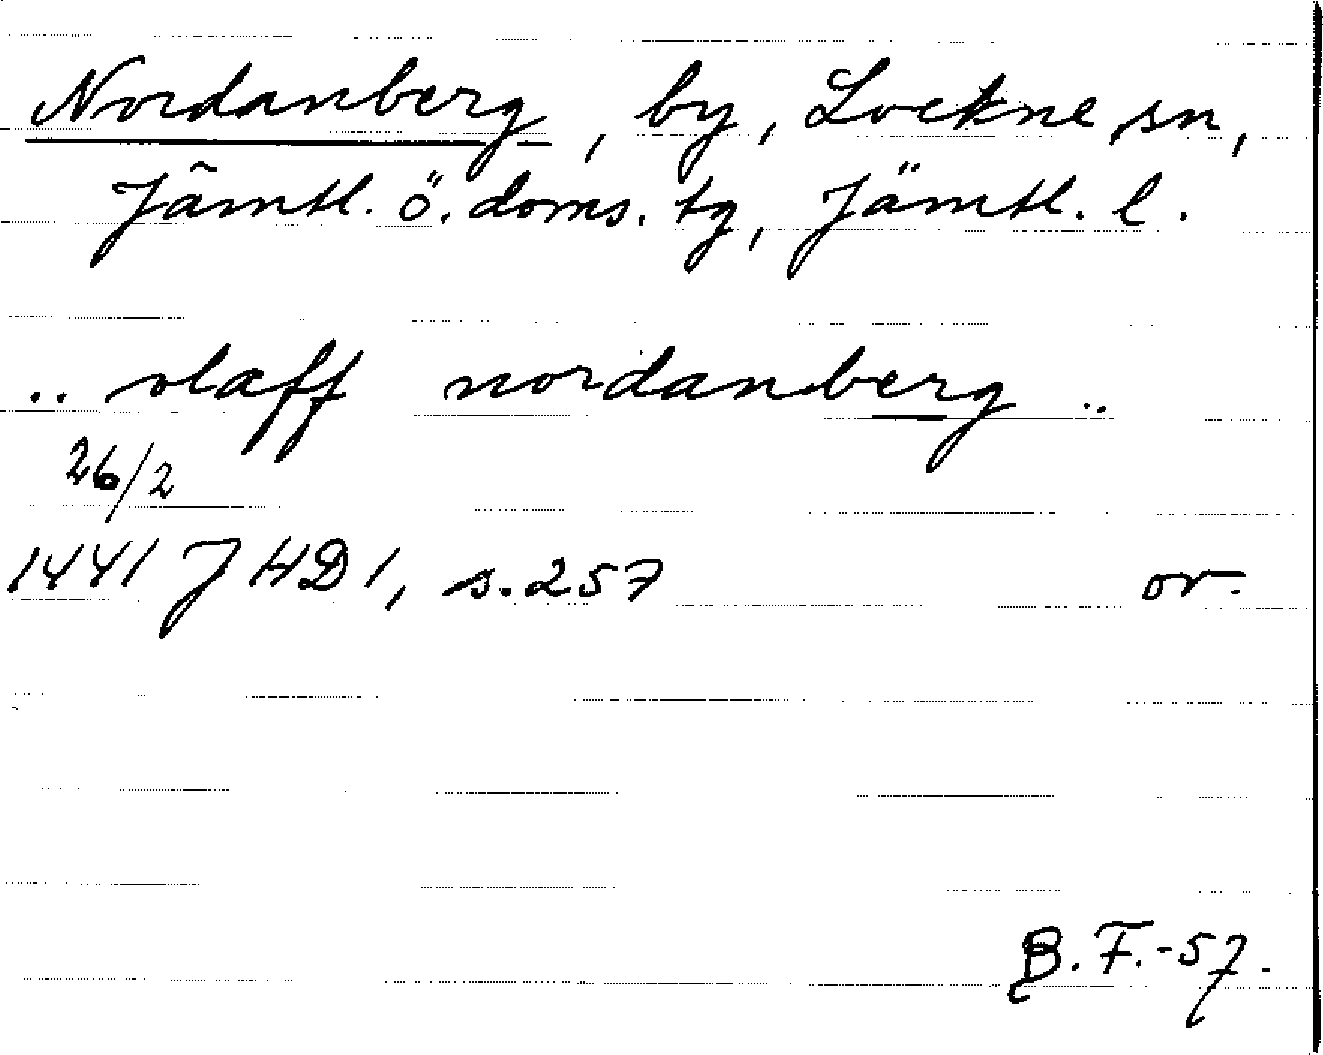 Nordanberg, by, Lockne sn,
Jämtl. ö. doms. tg, Jämtl. l.
.. olaff nordanberg ..
26/2
1441 JHD 1, s. 257 or.
B. F. -57.